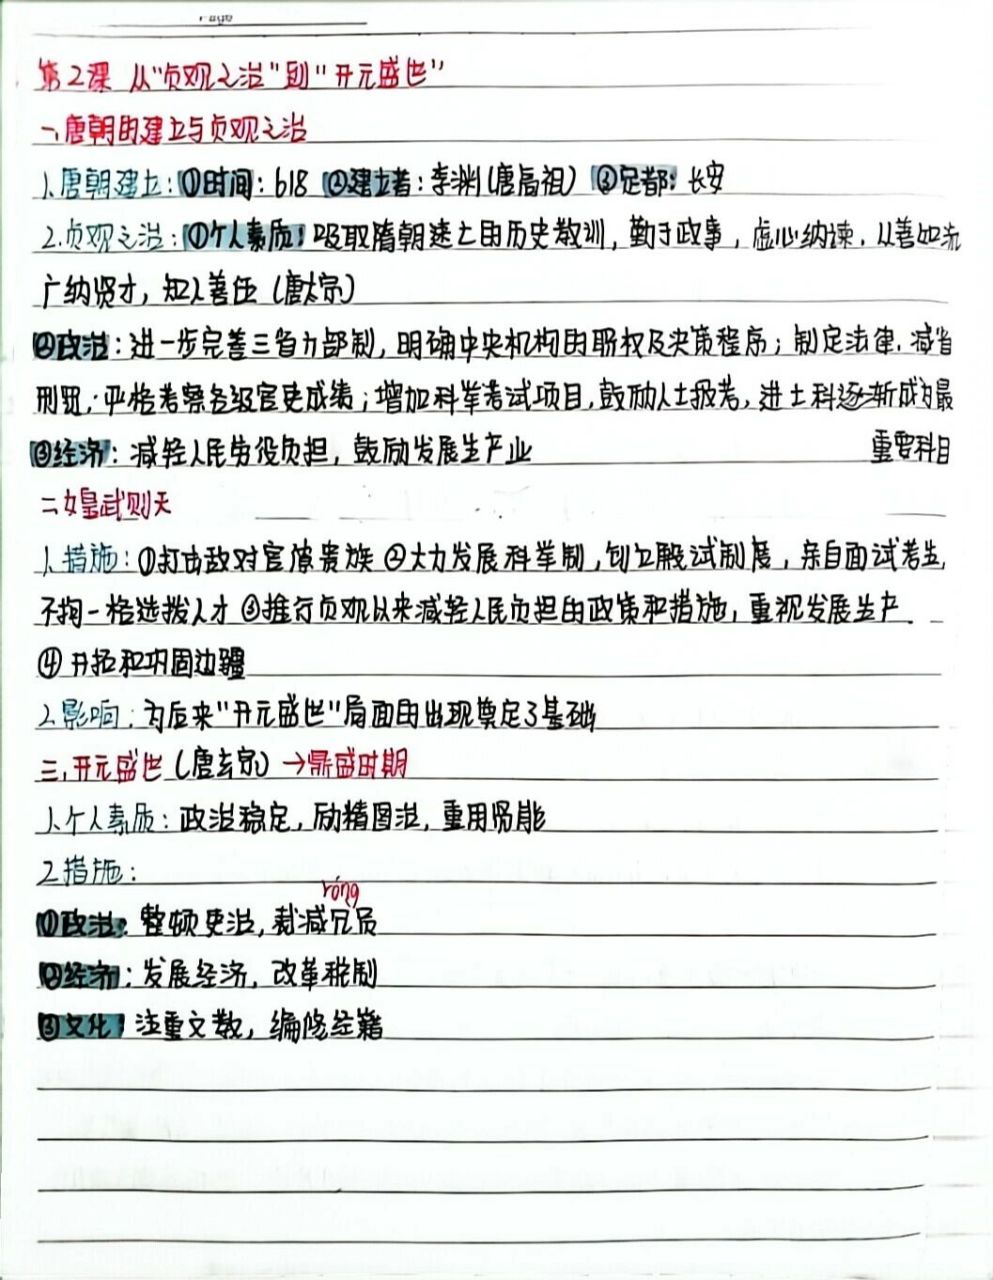 Page
第2课 从“贞观之治”到“开元盛世”
一、唐朝的建立与贞观之治
1.唐朝建立：①时间：618 ②建立者：李渊(唐高祖) ③定都：长安
2.贞观之治：①个人素质：吸取隋朝速亡的历史教训，勤于政事，虚心纳谏，从善如流
广纳贤才，知人善任(唐太宗)
②政治：进一步完善三省六部制，明确中央机构的职权及决策程序；制定法律，减省
刑罚；严格考察各级官吏成绩；增加科举考试项目，鼓励人士报考，进士科逐渐成为最
重要科目
③经济：减轻人民劳役负担，鼓励发展生产业
二、女皇武则天
1.措施：①打击敌对官僚贵族 ②大力发展科举制，创立殿试制度，亲自面试考生，
不拘一格选拨人才 ③推行贞观以来减轻人民负担的政策和措施，重视发展生产
④开拓和巩固边疆
2.影响：为后来“开元盛世”局面的出现奠定了基础
三、开元盛世(唐玄宗)→鼎盛时期
1.个人素质：政治稳定，励精图治，重用贤能
2.措施：
róng
①政治：整顿吏治，裁减冗员
②经济：发展经济，改革税制
③文化：注重文教，编修经籍